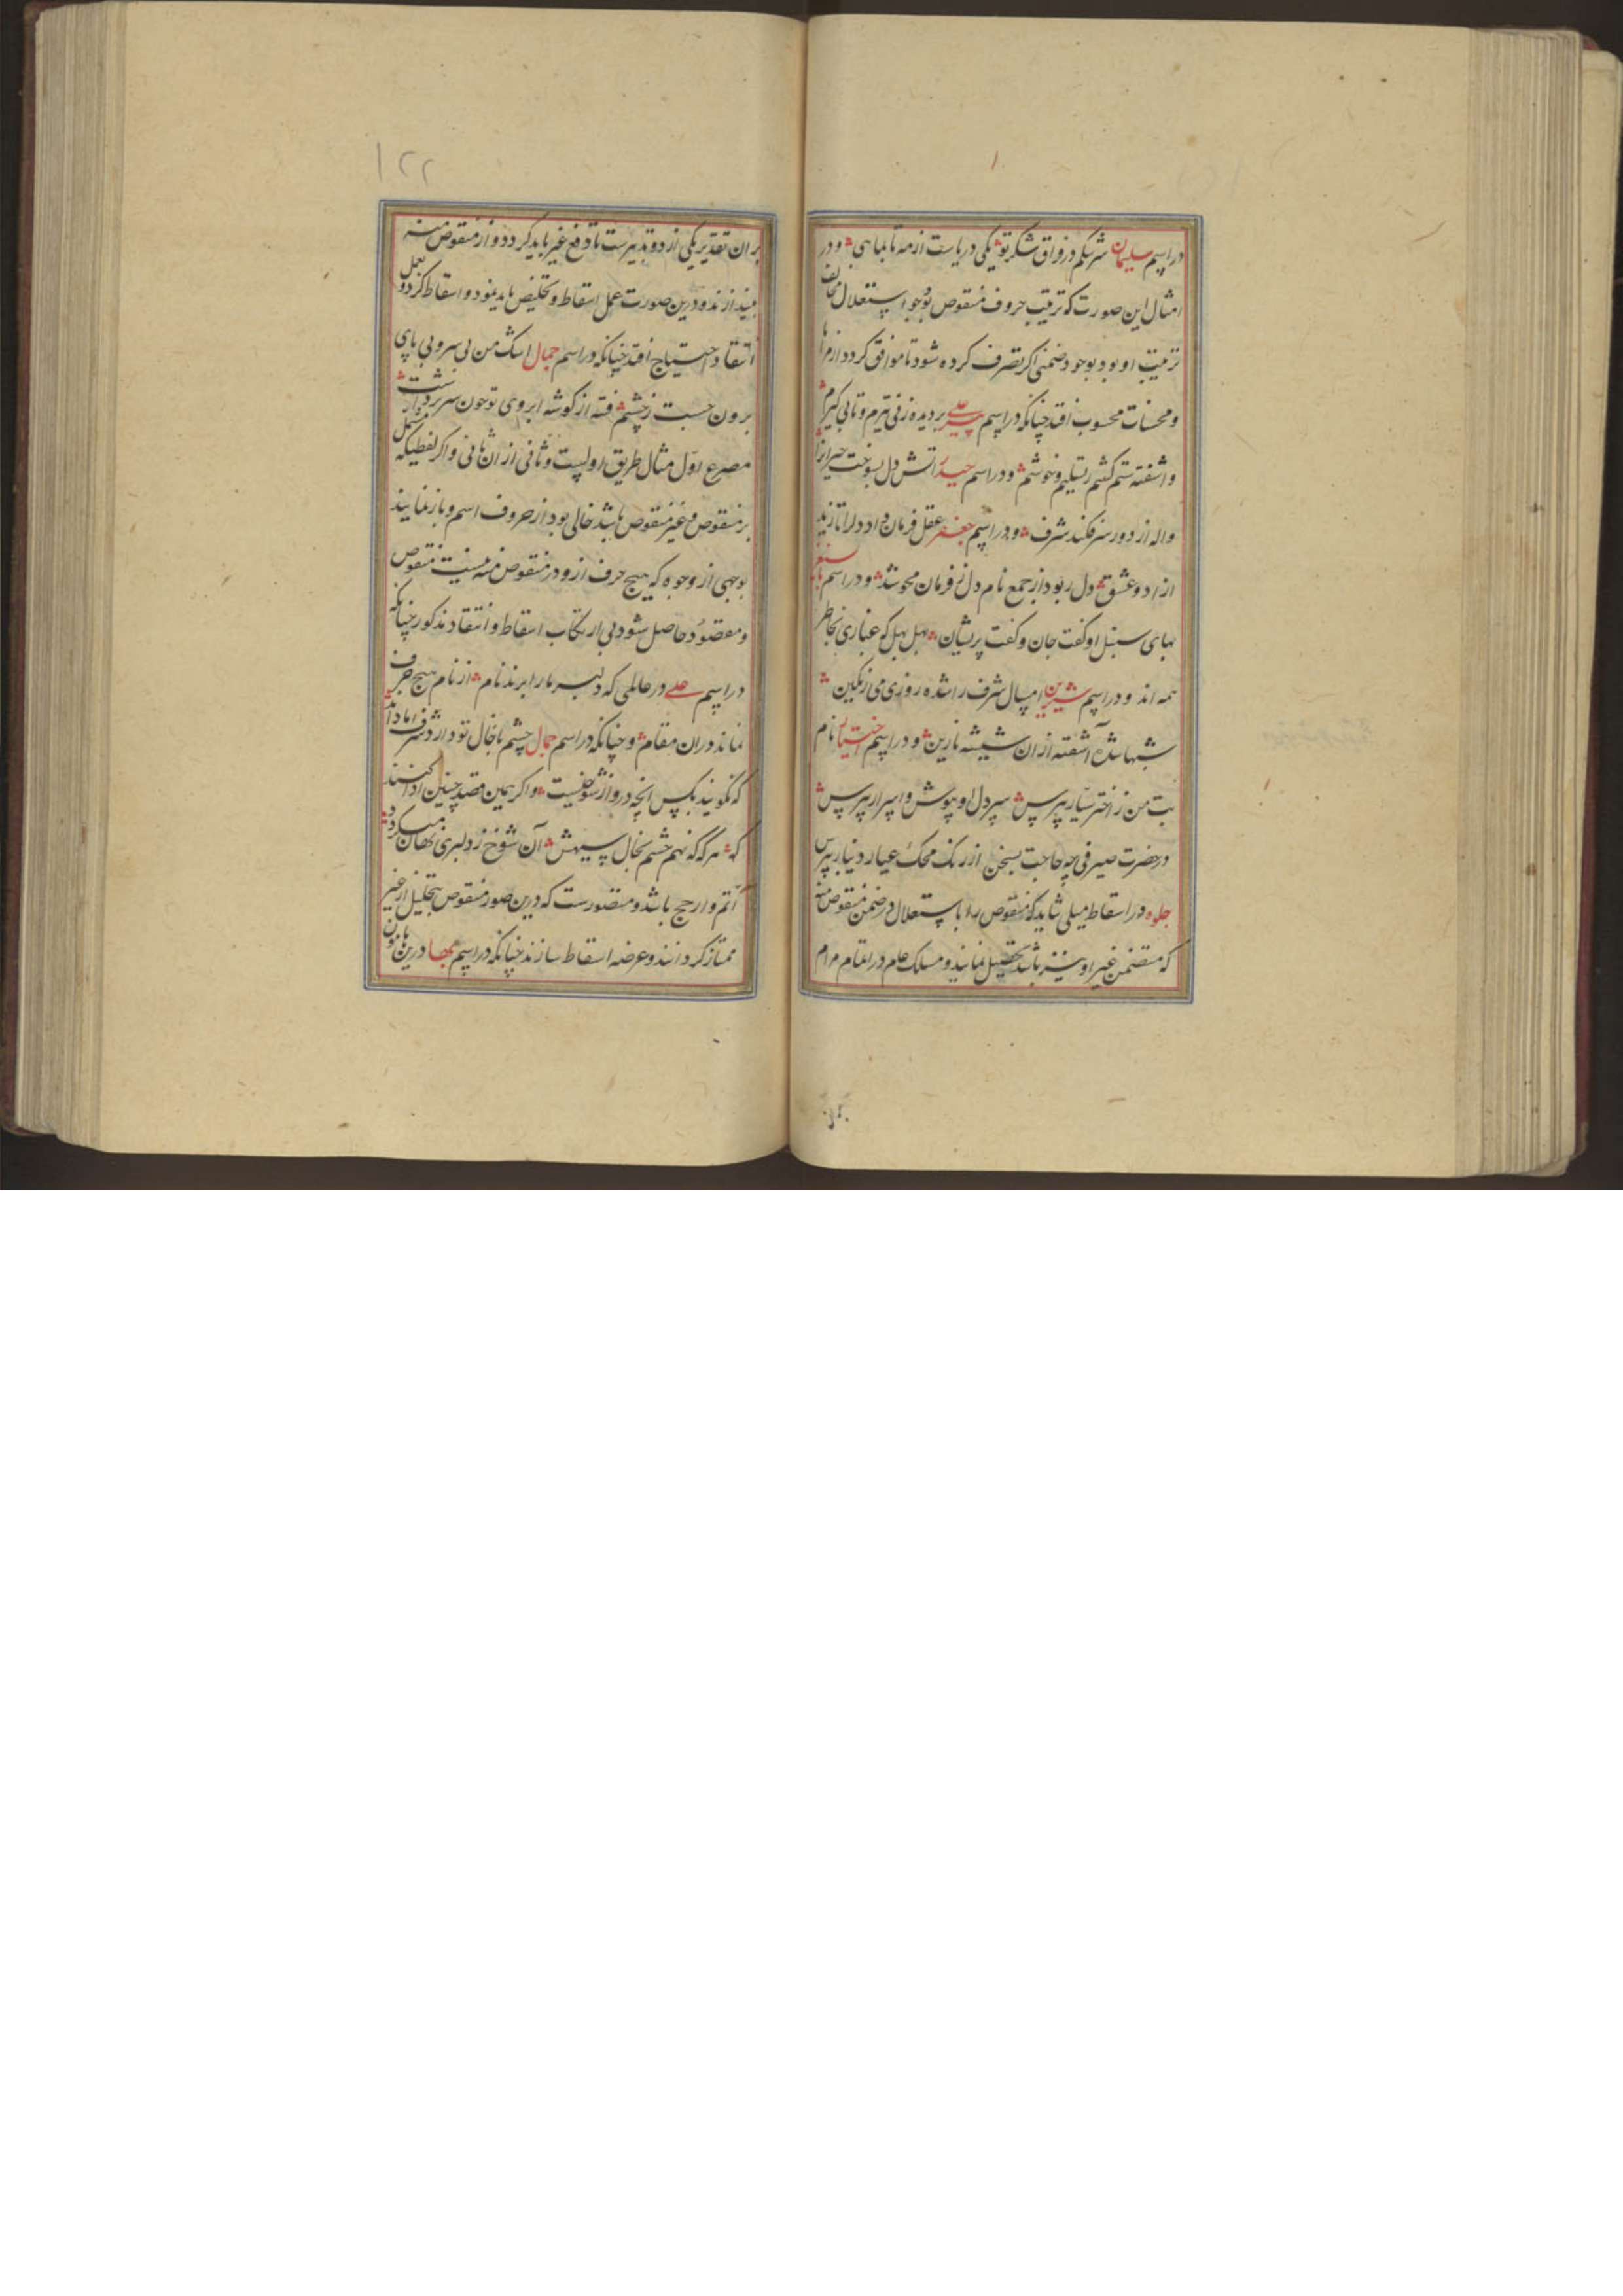 در اسم سلیمان شریکم در فراق شکر تو یکی دریاست از مه تا بماهی و در
امثال این صورت که ترتیب حروف منقوص بوجود استقلال مخالف
ترتیب او بود بوجود ضمنی اگر تصرف کرده شود تا موافق گردد از مزایا
و محسنات محسوب افتد چنانکه در اسم پیر علی بر دیده زنی تیرم و تابی گیرم
و آشفته ستم کشم تسلیم و خوشم و در اسم حیدر آتش دل بسوخت
واله از دور سر فکند شرف و در اسم جعفر عقل فرمان داد دل را تا زید
آزاد و عشق دل ربود از جمع نام دل ز فرمان محو شد و در اسم
بهای سنبل او گفت جان و گفت پریشان بهل بهل که غباری بخاطر
همه اند و در اسم شیرین امسال شرف را شده روزی می رنگین
شبها شده آشفته از آن شیشه نارین و در اسم اختیار نام
بت من ز اختر سیار بپرس سر دل او بپوش و اسرار بپرس
در حضرت صیرفی چه حاجت بسخن از رنگ محک عیار دینار بپرس
جلوه در اسقاط میلی شاید که منقوص را باستقلال در ضمن منقوص منه
که متضمن غیر او نیز باشد تحصیل نمایند و مسلک عام در اتمام مرام
۱۲۲
بر آن تقدیر یکی از دو تدبیرست تا دفع غیر باید کرد و از منقوص منه
بیندازند و درین صورت عمل اسقاط و تخلیص باید نمود و اسقاط کرد و بعمل
انتقاد احتیاج افتد چنانکه در اسم جمال اشک من بی سر و بی پای
برون جست ز چشم فتنه از گوشه ابروی تو چون سر برداشت
مصرع اول مثال طریق اولیست و ثانی از آن ثانی و اگر لفظی که مشتمل
بر منقوص و غیر منقوص باشد خالی بود از حروف اسم و باز نمایند
بوجهی از وجوه که هیچ حرف ازو در منقوص منه نیست منقوص
و مقصود حاصل شود بی ارتکاب اسقاط و انتقاد مذکور چنانکه
در اسم علی در عالمی که دلبر ما را برند نام از نام هیچ حرف
نماند در آن مقام و چنانکه در اسم جمال چشم با خال تو دارد شرف اما داند
که نگویند بکس آنچه درو از شوخیست و اگر همین قصد چنین ادا کنند
که هر گه که نهم چشم بخال سیهش آن شوخ ز دلبری نهان میگردد
اتم و ارجح باشد و متصورست که درین صور منقوص بتحلیل از غیر
ممتاز گردانند و عرضه اسقاط سازند چنانکه در اسم بها درین هامون